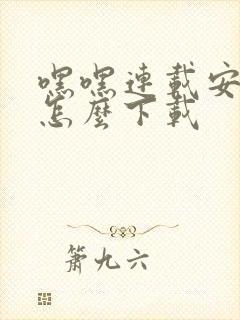 嘿嘿連載安
怎麼下載
簫九六